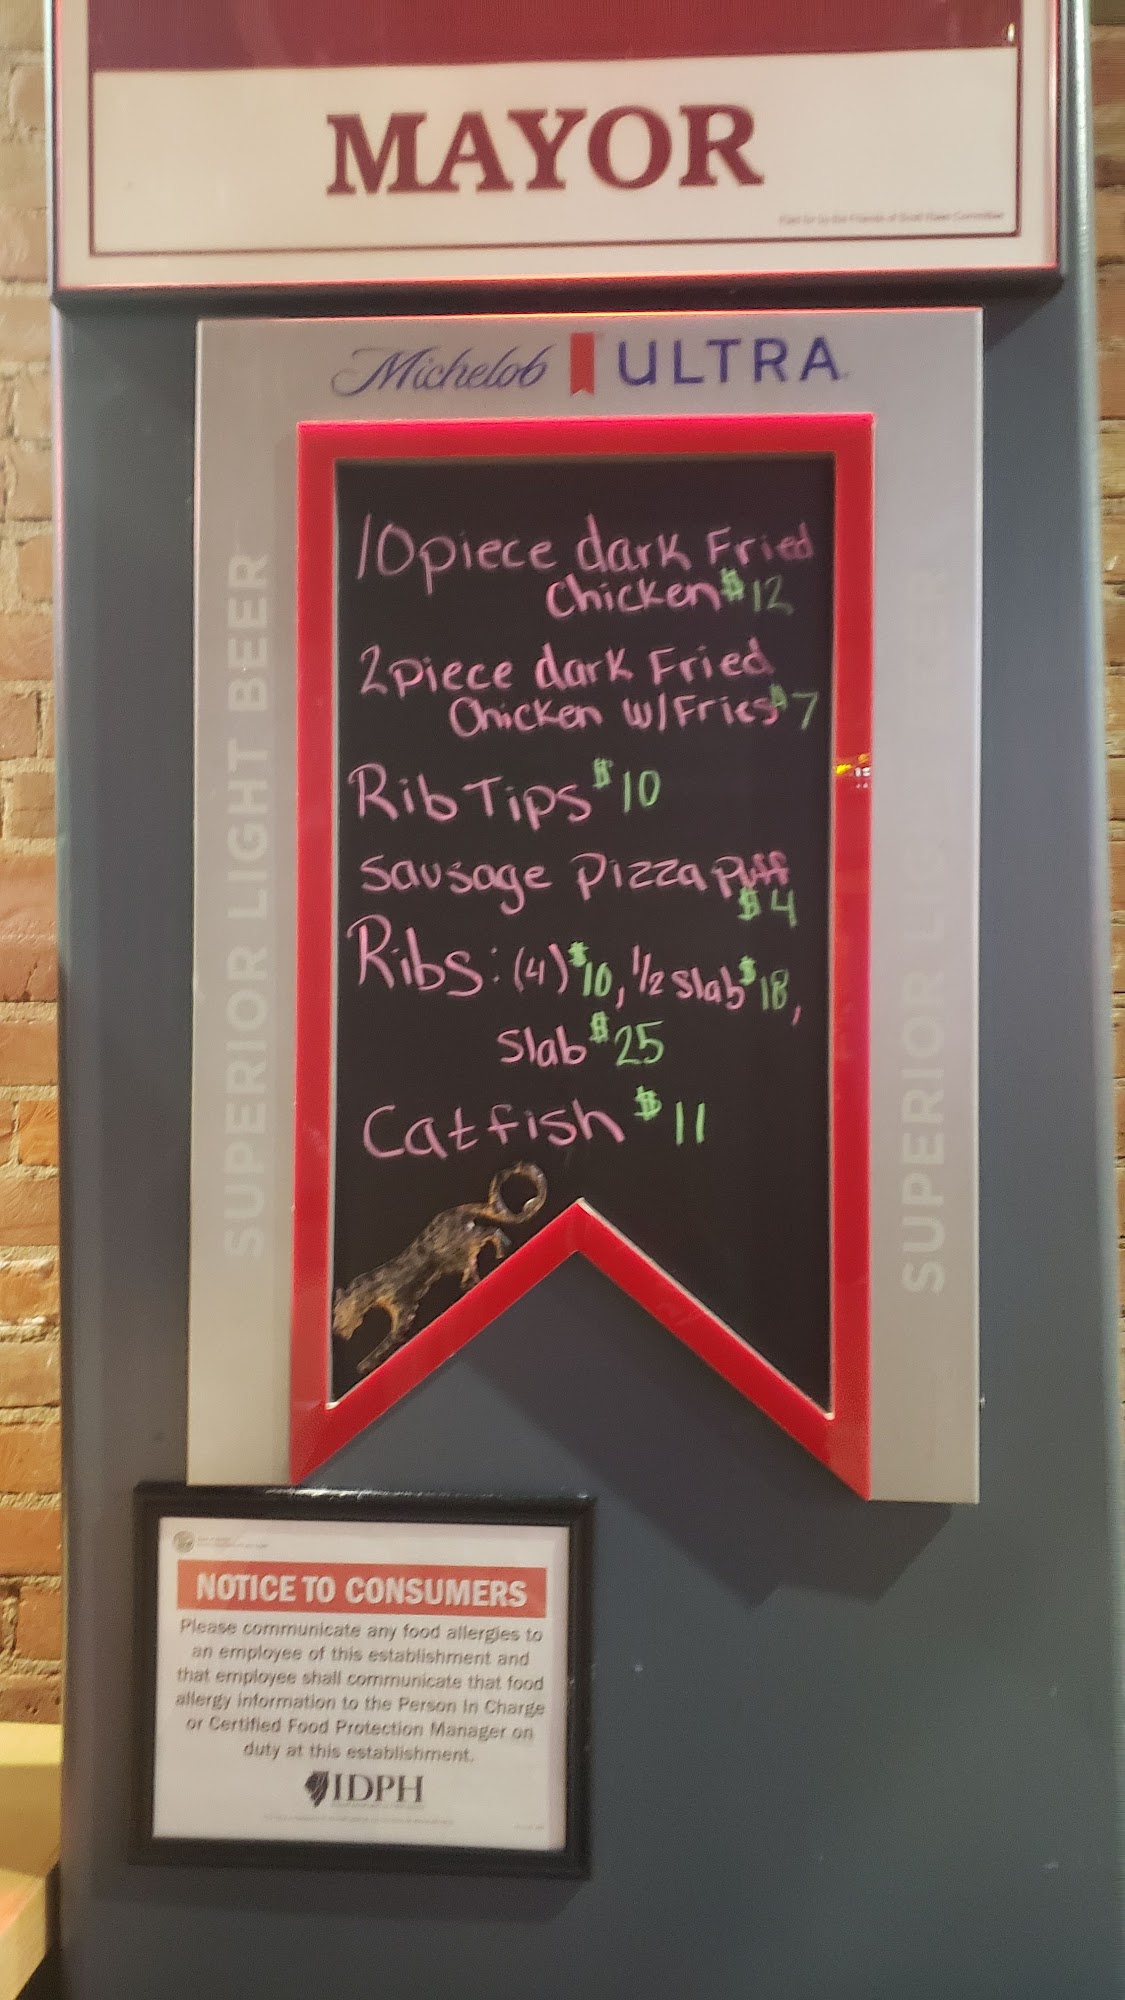 MAYOR
Michelob ULTRA
SUPERIOR LIGHT BEER
10 piece dark Fried
Chicken $12
2 piece dark Fried
Chicken w/Fries $7
Rib Tips $10
Sausage Pizza Puff
$4
Ribs: (4) $10, 1/2 slab $18,
Slab $25
Catfish $11
SUPERIOR LIGHT BEER
NOTICE TO CONSUMERS
Please communicate any food allergies to
an employee of this establishment and
that employee shall communicate that food
allergy information to the Person In Charge
or Certified Food Protection Manager on
duty at this establishment.
IDPH